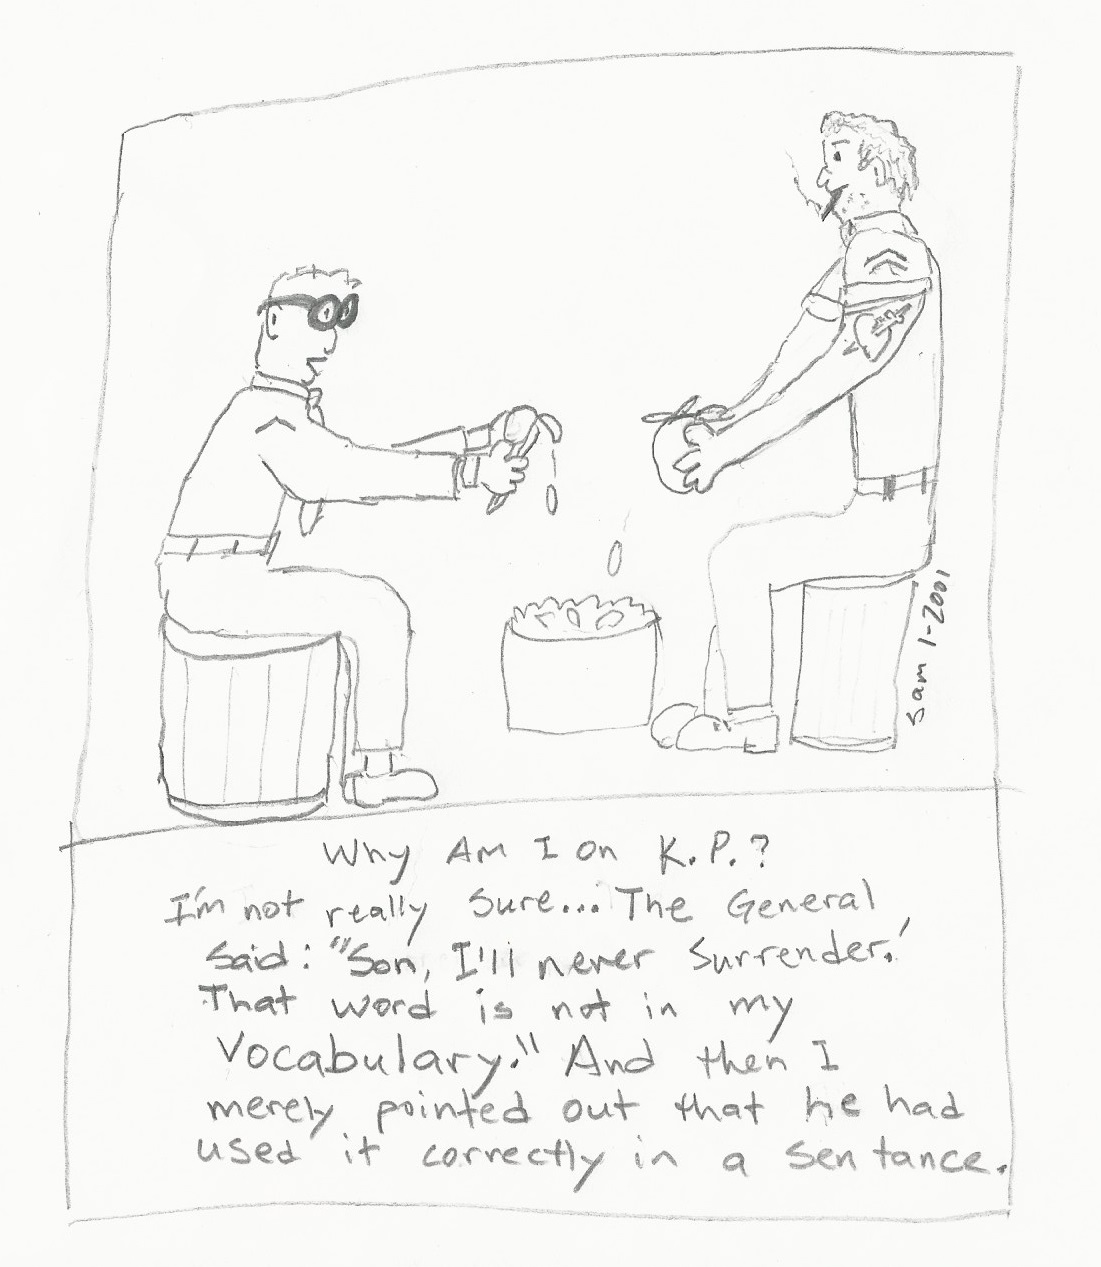 Sam 1-2001
Why Am I on K.P.?
I'm not really Sure... The General
Said: "Son, I'll never Surrender.'
That word is not in my
Vocabulary." And then I
merely pointed out that he had
used it correctly in a Sentance.